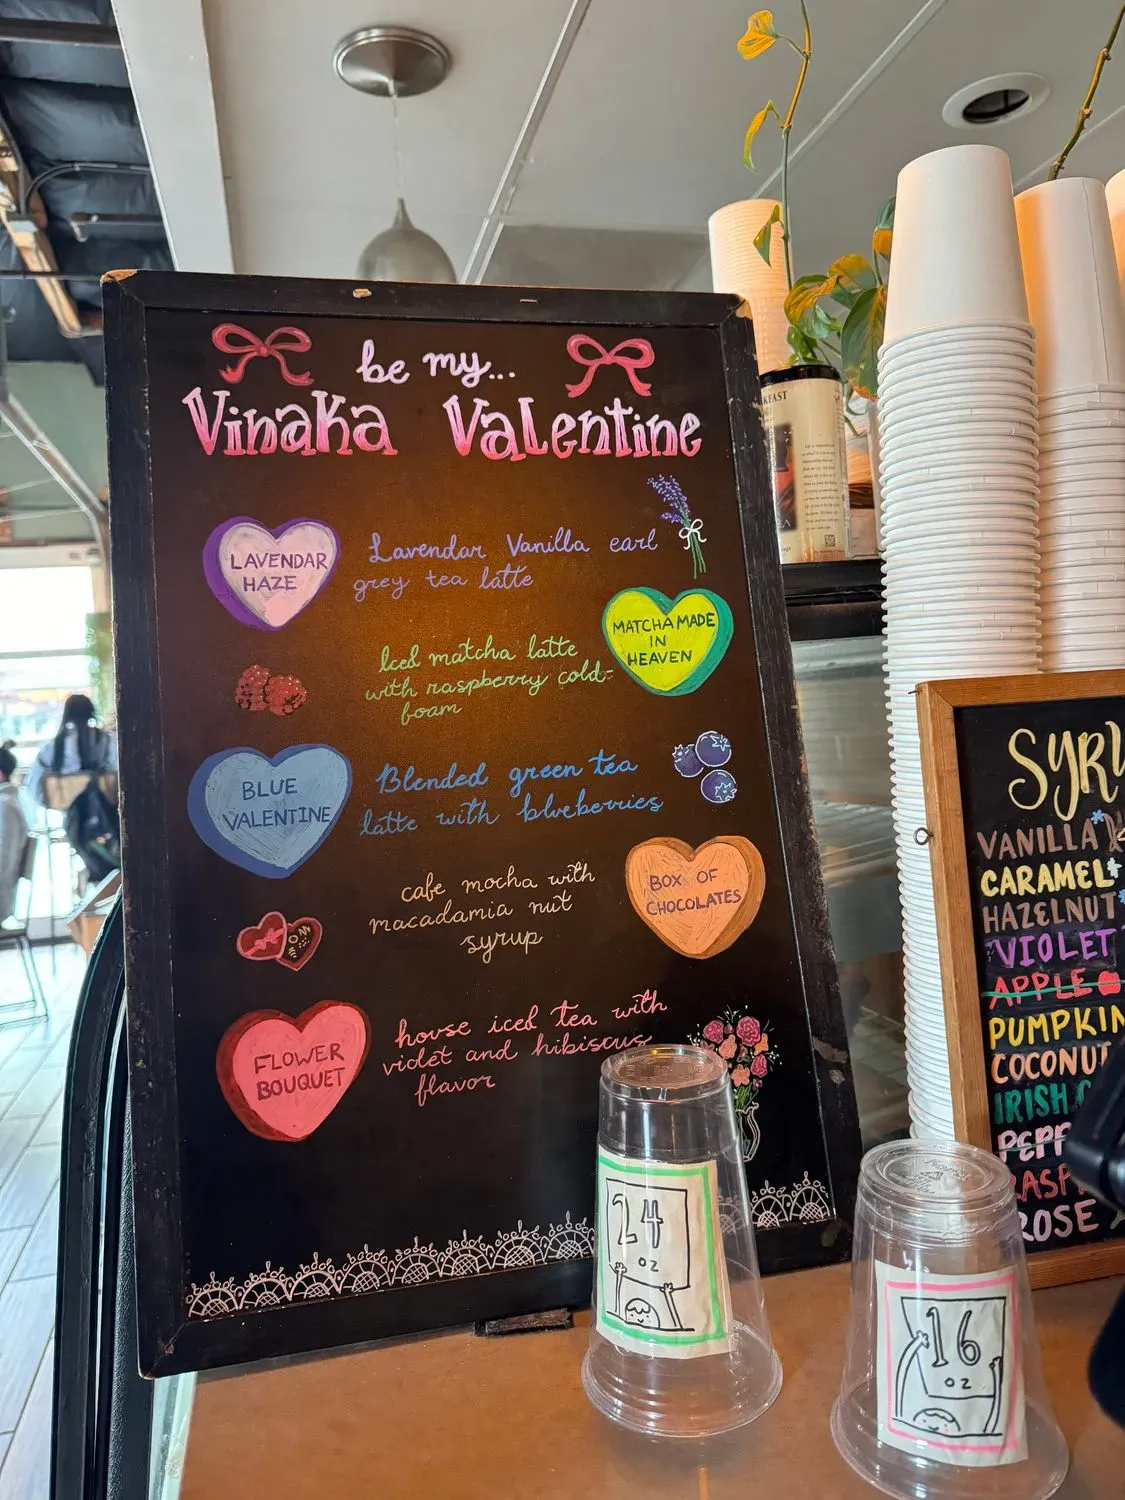 be my...
Vinaka Valentine
LAVENDAR
HAZE
Lavendar Vanilla earl
grey tea latte
MATCHA MADE
IN
HEAVEN
Iced matcha latte
with raspberry cold-
foam
BLUE
VALENTINE
Blended green tea
latte with blueberries
BOX OF
CHOCOLATES
cafe mocha with
macadamia nut
syrup
FLOWER
BOUQUET
house iced tea with
violet and hibiscus
flavor
24
OZ
16
OZ
VANILLA
CARAMEL
HAZELNUT
VIOLET
APPLE
PUMPKIN
COCONUT
IRISH
ROSE